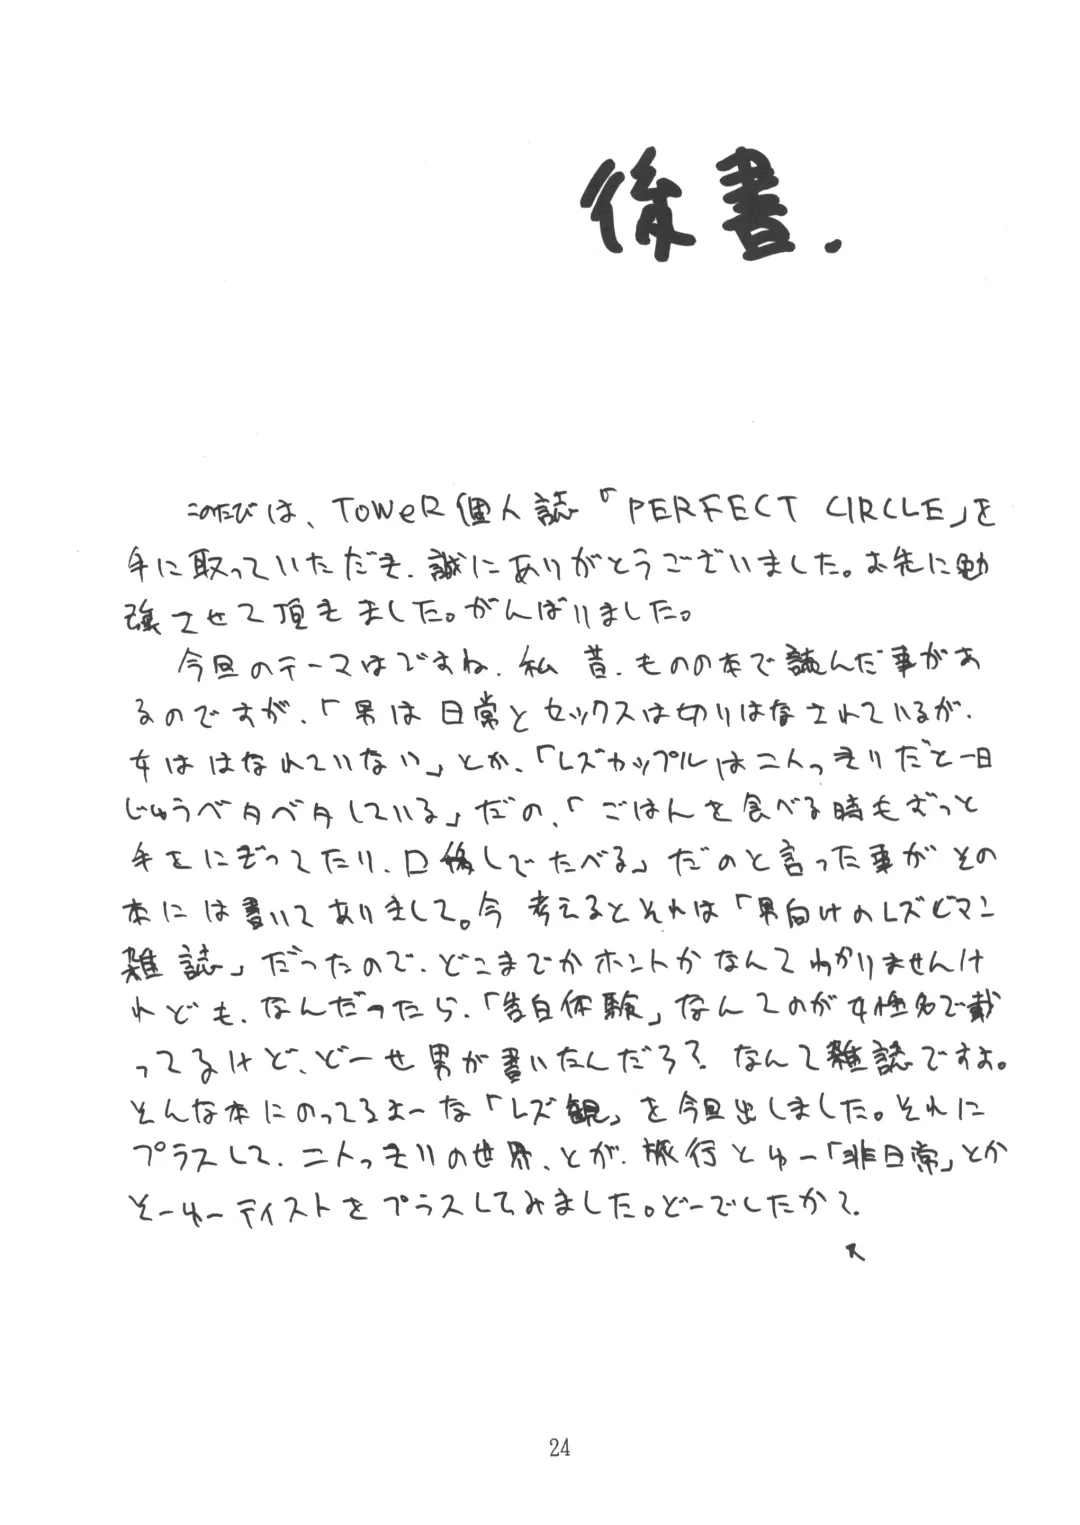 後書.
このたびは、TOWeR個人誌「PERFECT CIRCLE」を
手に取っていただき、誠にありがとうございました。お先に勉
強させて頂きました。がんばりました。
今回のテーマはですね、私 昔、ものの本で読んだ事があ
るのですが、「男は日常とセックスは切りはなされているが、
女ははなれていない」とか、「レズカップルは二人っきりだと一日
じゅうベタベタしている」だの、「ごはんを食べる時もずっと
手をにぎってたり、口移しでたべる」だのと言った事がその
本には書いてありまして。今 考えるとそれは「男向けのレズビアン
雑誌」だったので、どこまでがホントかなんてわかりませんけ
れども、なんだったら、「告白体験」なんてのが女性名で載
ってるけど、どーせ男が書いたんだろ?なんて雑誌ですよ。
そんな本にのってるよーな「レズ観」を今回出しました。それに
プラスして、二人っきりの世界、とが、旅行とゆー「非日常」とか
そーゆーテイストをプラスしてみました。どーでしたか?
24